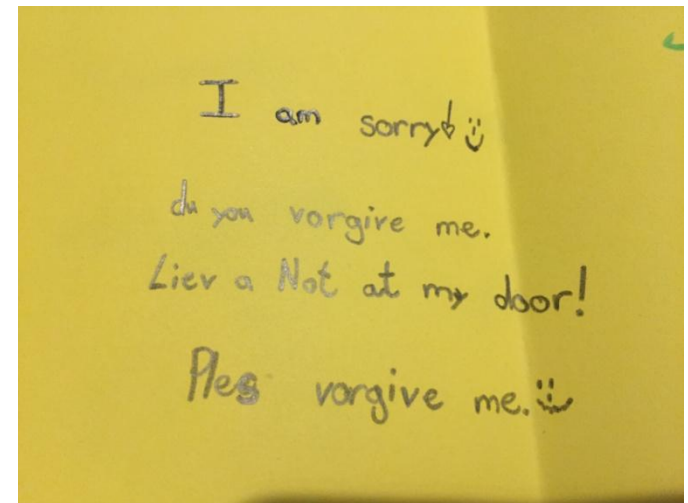 I am sorry! :)
du you vorgive me.
Liev a Not at my door!
Ples vorgive me. :)